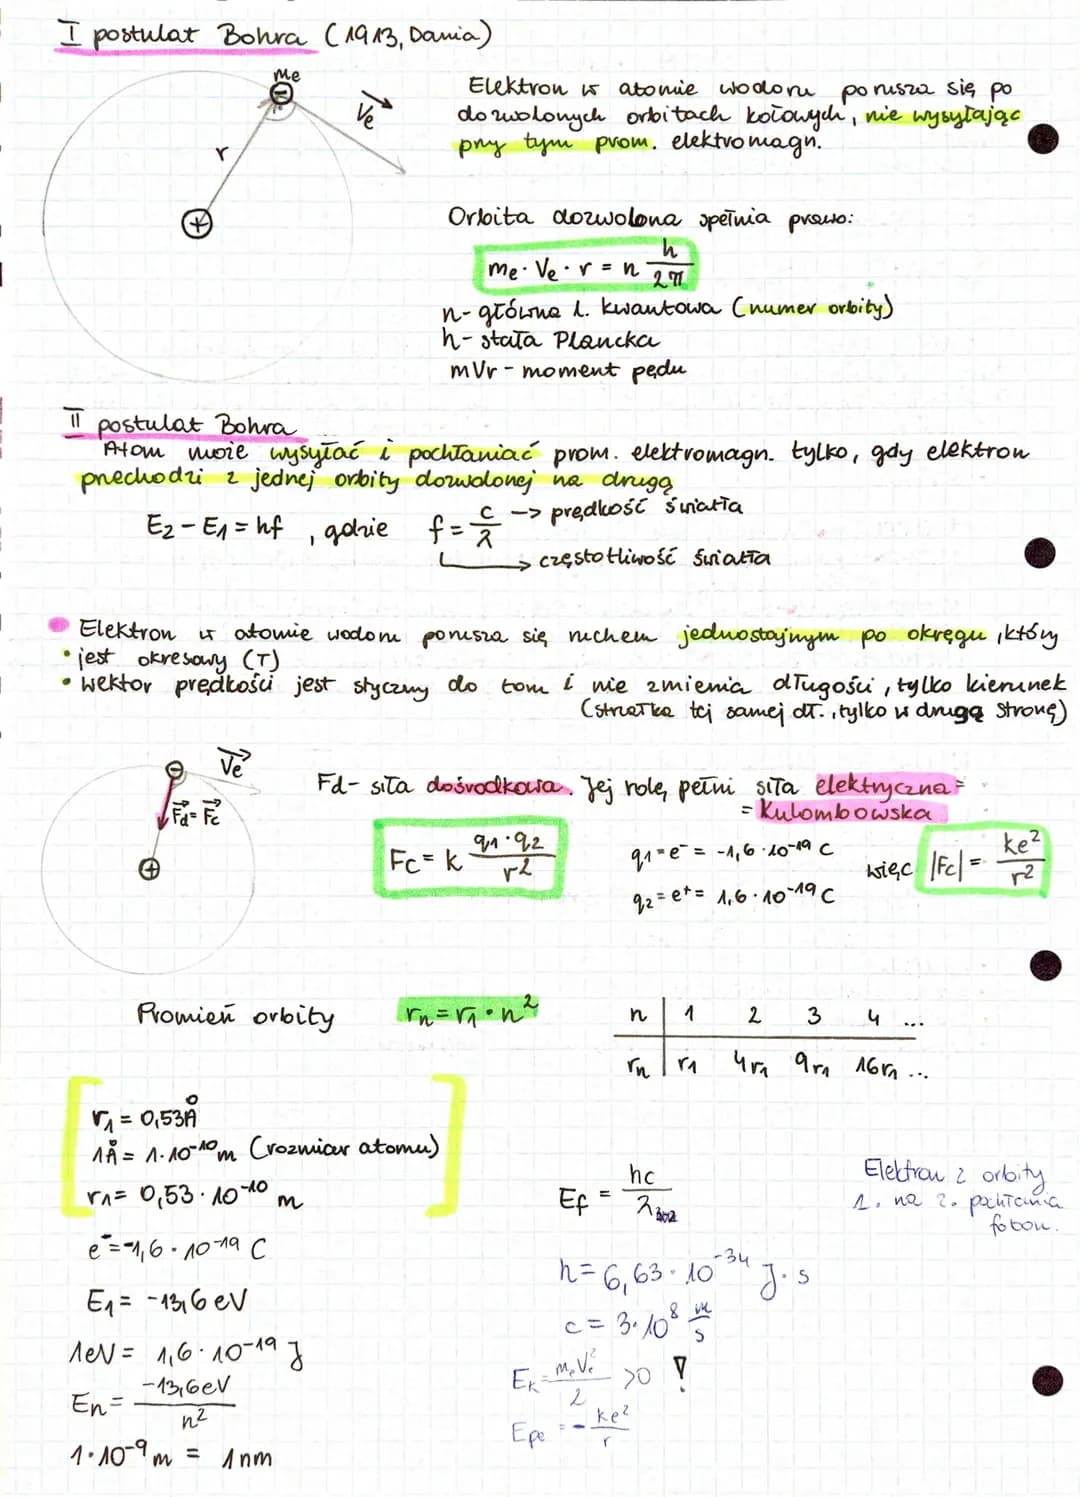 I postulat Bohra (1913, Dania)
me
Ve
r
Elektron w atomie wodoru porusza się po
dozwolonych orbitach kołowych, nie wysyłając
przy tym prom. elektromagn.
Orbita dozwolona spełnia prawo:
me · Ve · r = n h/2π
n - główna l. kwantowa (numer orbity)
h - stała Plancka
mVr - moment pędu
II postulat Bohra
Atom może wysyłać i pochłaniać prom. elektromagn. tylko, gdy elektron
przechodzi z jednej orbity dozwolonej na drugą
E2 - E1 = hf , gdzie f = c/λ -> prędkość światła
-> częstotliwość światła
Elektron w atomie wodoru porusza się ruchem jednostajnym po okręgu, który
• jest okresowy (T)
• wektor prędkości jest styczny do toru i nie zmienia długości, tylko kierunek
(strzałka tej samej dł., tylko w drugą stronę)
Ve
Fd = Fc
Fd - siła dośrodkowa. Jej rolę pełni siła elektryczna =
= kulombowska
Fc = k q1 · q2 / r²
q1 = e⁻ = -1,6 · 10⁻¹⁹ C
q2 = e⁺ = 1,6 · 10⁻¹⁹ C
więc |Fc| = ke²/r²
Promień orbity rn = r1 · n²
n | 1 2 3 4 ...
rn | r1 4r1 9r1 16r1 ...
r1 = 0,53Å
1Å = 1 · 10⁻¹⁰ m (rozmiar atomu)
r1 = 0,53 · 10⁻¹⁰ m
e⁻ = -1,6 · 10⁻¹⁹ C
E1 = -13,6 eV
1eV = 1,6 · 10⁻¹⁹ J
En = -13,6eV/n²
1 · 10⁻⁹ m = 1 nm
Ef = hc/λ
h = 6,63 · 10⁻³⁴ J · s
c = 3 · 10⁸ m/s
Ek = meVe²/2 >0 !
Epe = - ke²/r
Elektron z orbity
1. na 2. pochłania
foton.